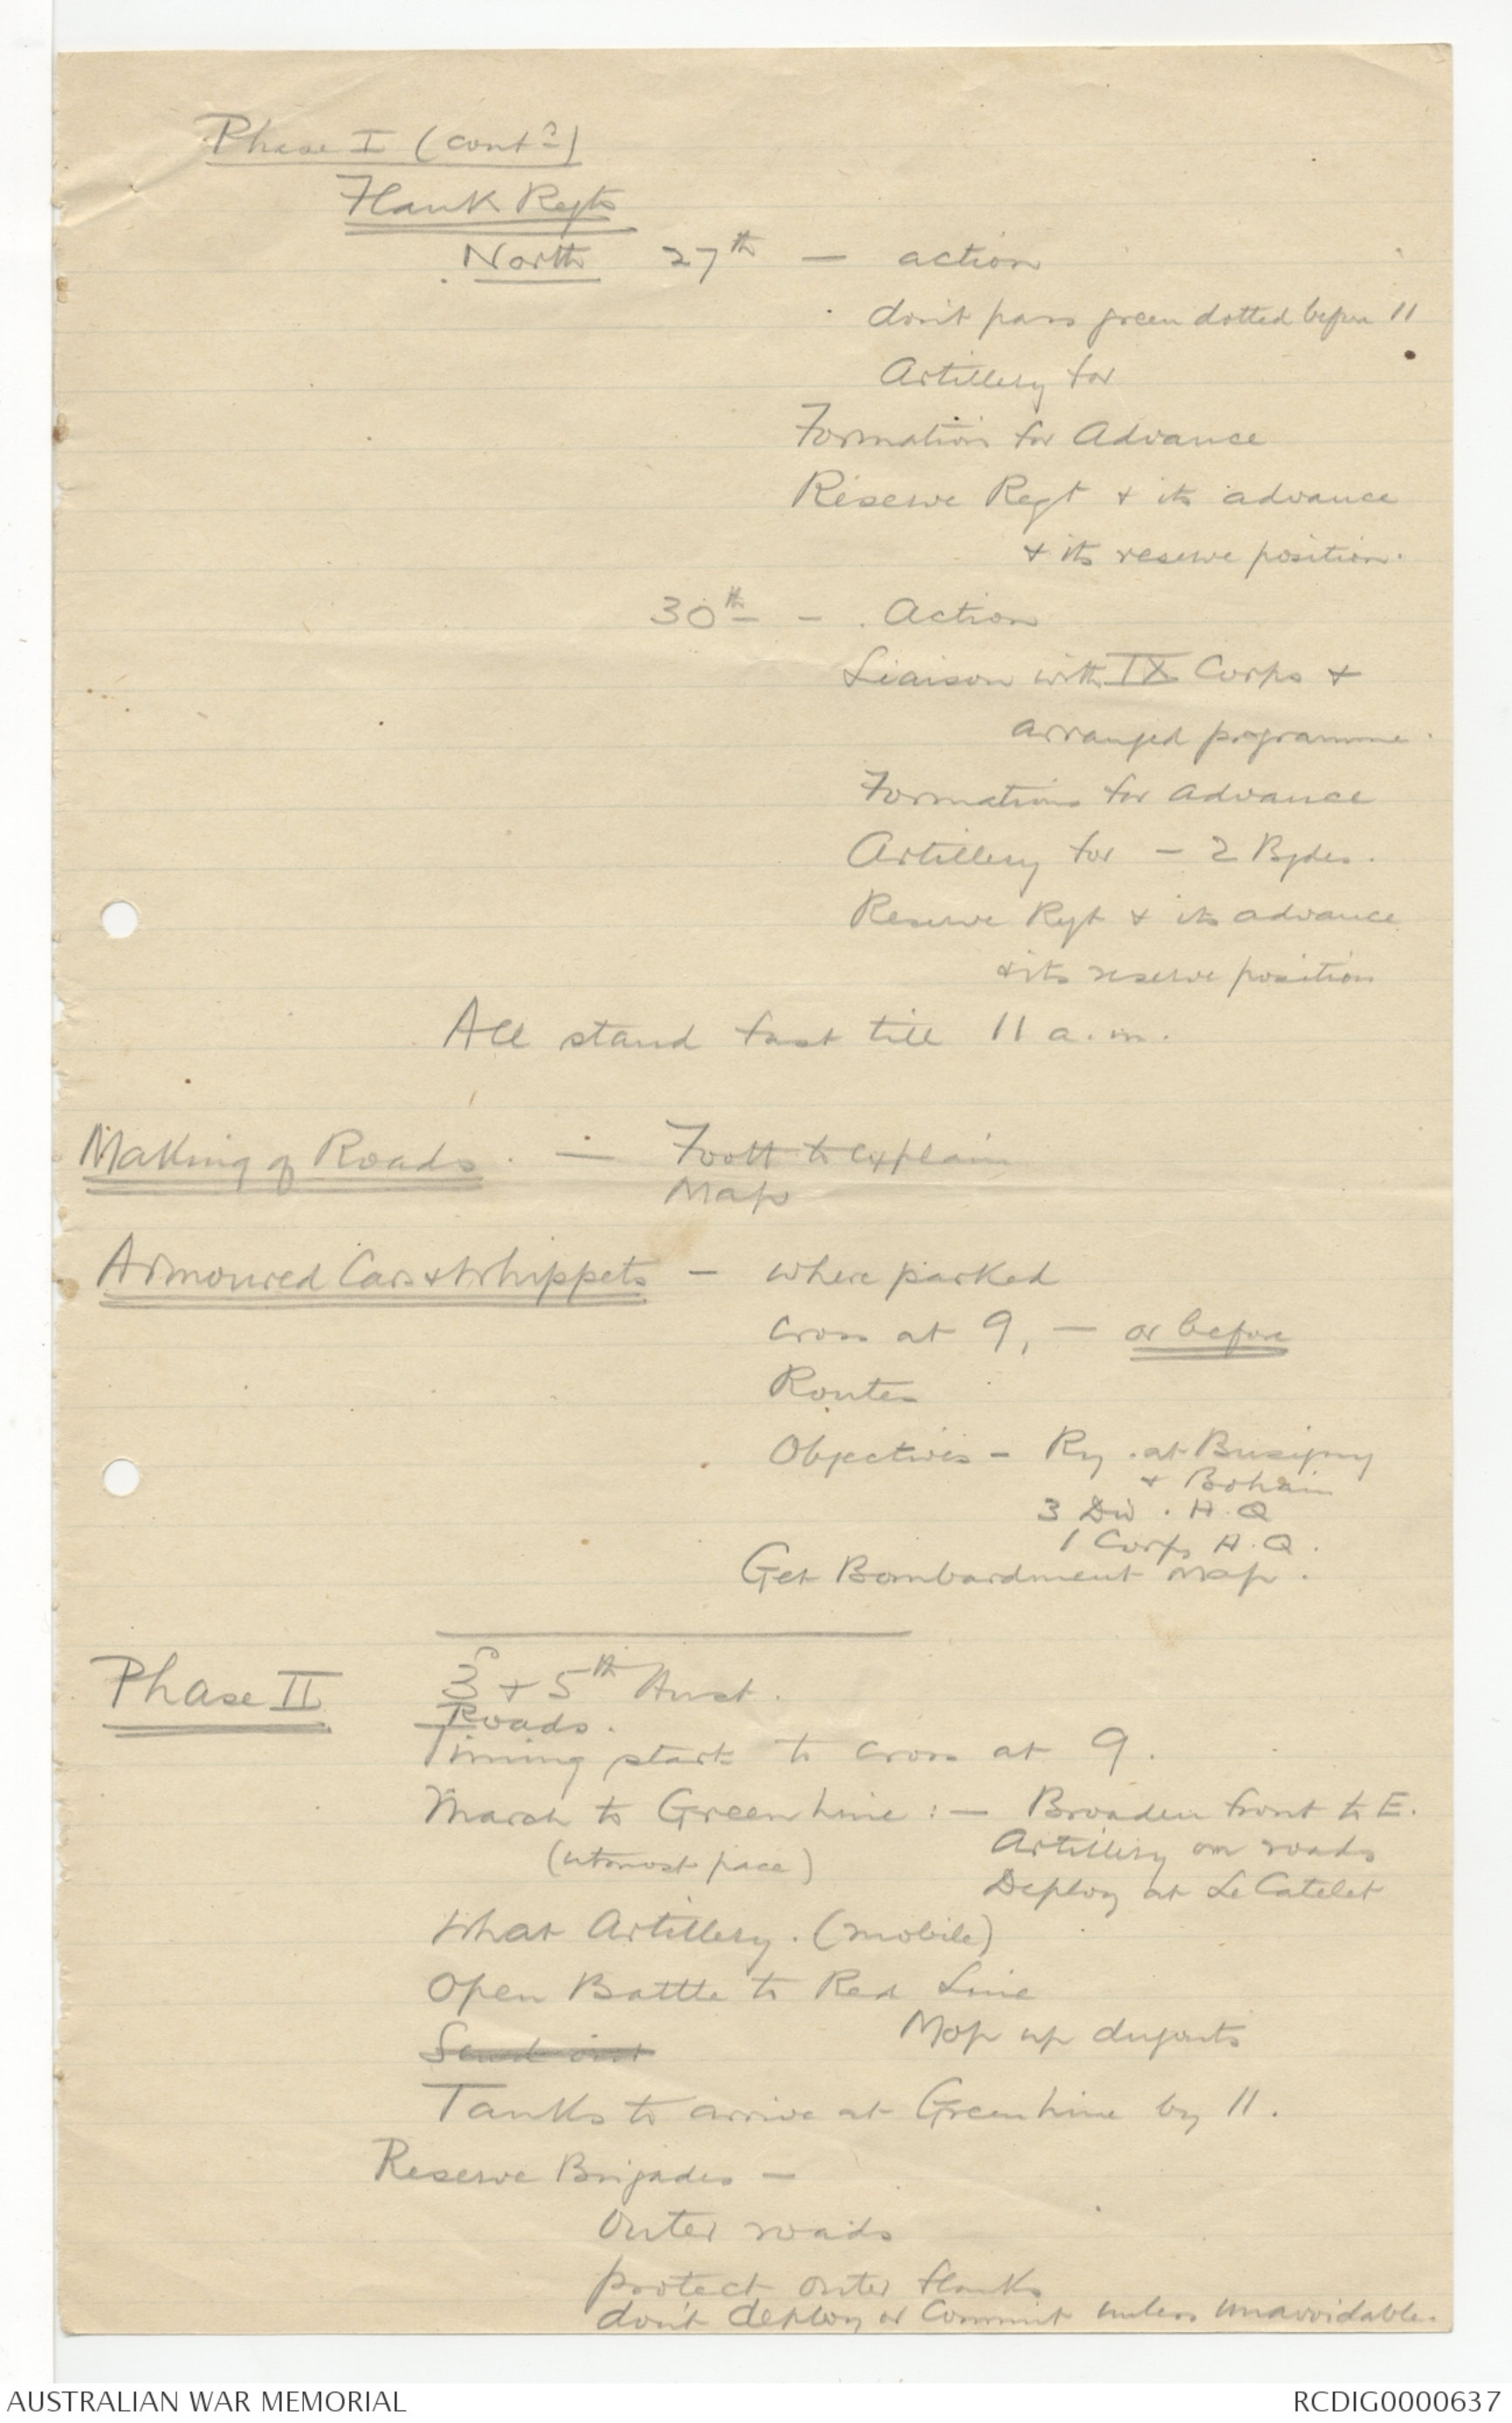 Phase I (contd)
Flank Regts
North 27th — action
don't pass green dotted before 11
Artillery for
Formation for Advance
Reserve Regt & its advance
& its reserve position.
30th - Action
Liaison with IX Corps &
arranged programme.
Formations for advance
Artillery for - 2 Bgdes.
Reserve Regt & its advance
& its reserve position
All stand fast till 11 a.m.
Making of Roads. — Foott to explain
Map
Armoured Cars & Whippets - where parked
cross at 9, — or before
Routes
Objectives - Ry. at Busigny
& Bohain
3 Div. H.Q
1 Corps H.Q.
Get Bombardment map.
Phase II 3rd + 5th Aust.
Roads.
Timing start to cross at 9.
March to Green Line :- Broaden front to E.
(utmost pace) Artillery on roads
Deploy at Le Catelet
What Artillery. (mobile)
Open Battle to Red Line
Send out Mop up dugouts
Tanks to arrive at Green Line by 11.
Reserve Brigades -
Outer roads
protect outer flanks
don't deploy or Commit unless unavoidable.
AUSTRALIAN WAR MEMORIAL RCDIG0000637